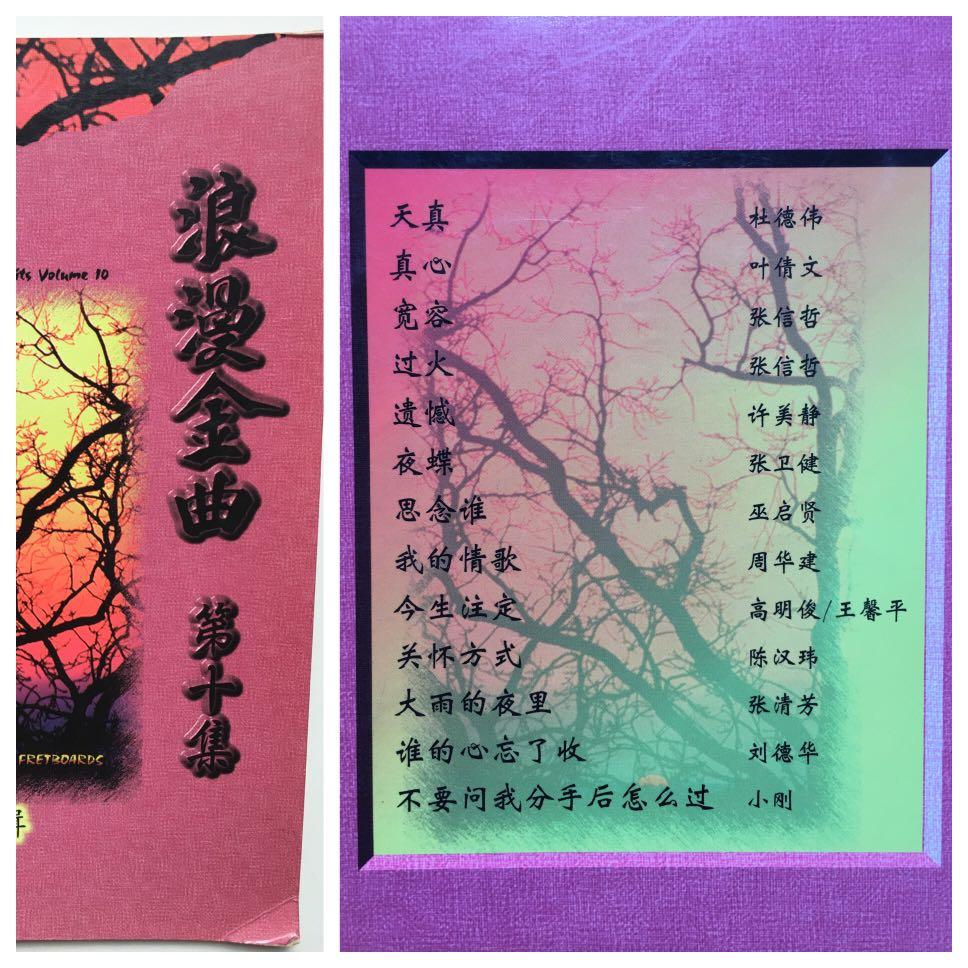 浪漫金曲 第十集
Volume 10
FRETBOARDS
天真 杜德伟
真心 叶倩文
宽容 张信哲
过火 张信哲
遗憾 许美静
夜蝶 张卫健
思念谁 巫启贤
我的情歌 周华建
今生注定 高明俊/王馨平
关怀方式 陈汉玮
大雨的夜里 张清芳
谁的心忘了收 刘德华
不要问我分手后怎么过 小刚